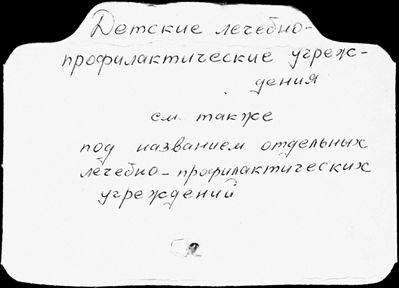 Детские лечебно-
профилактические учреж-
дения
см. также
под названием отдельных
лечебно-профилактических
учреждений